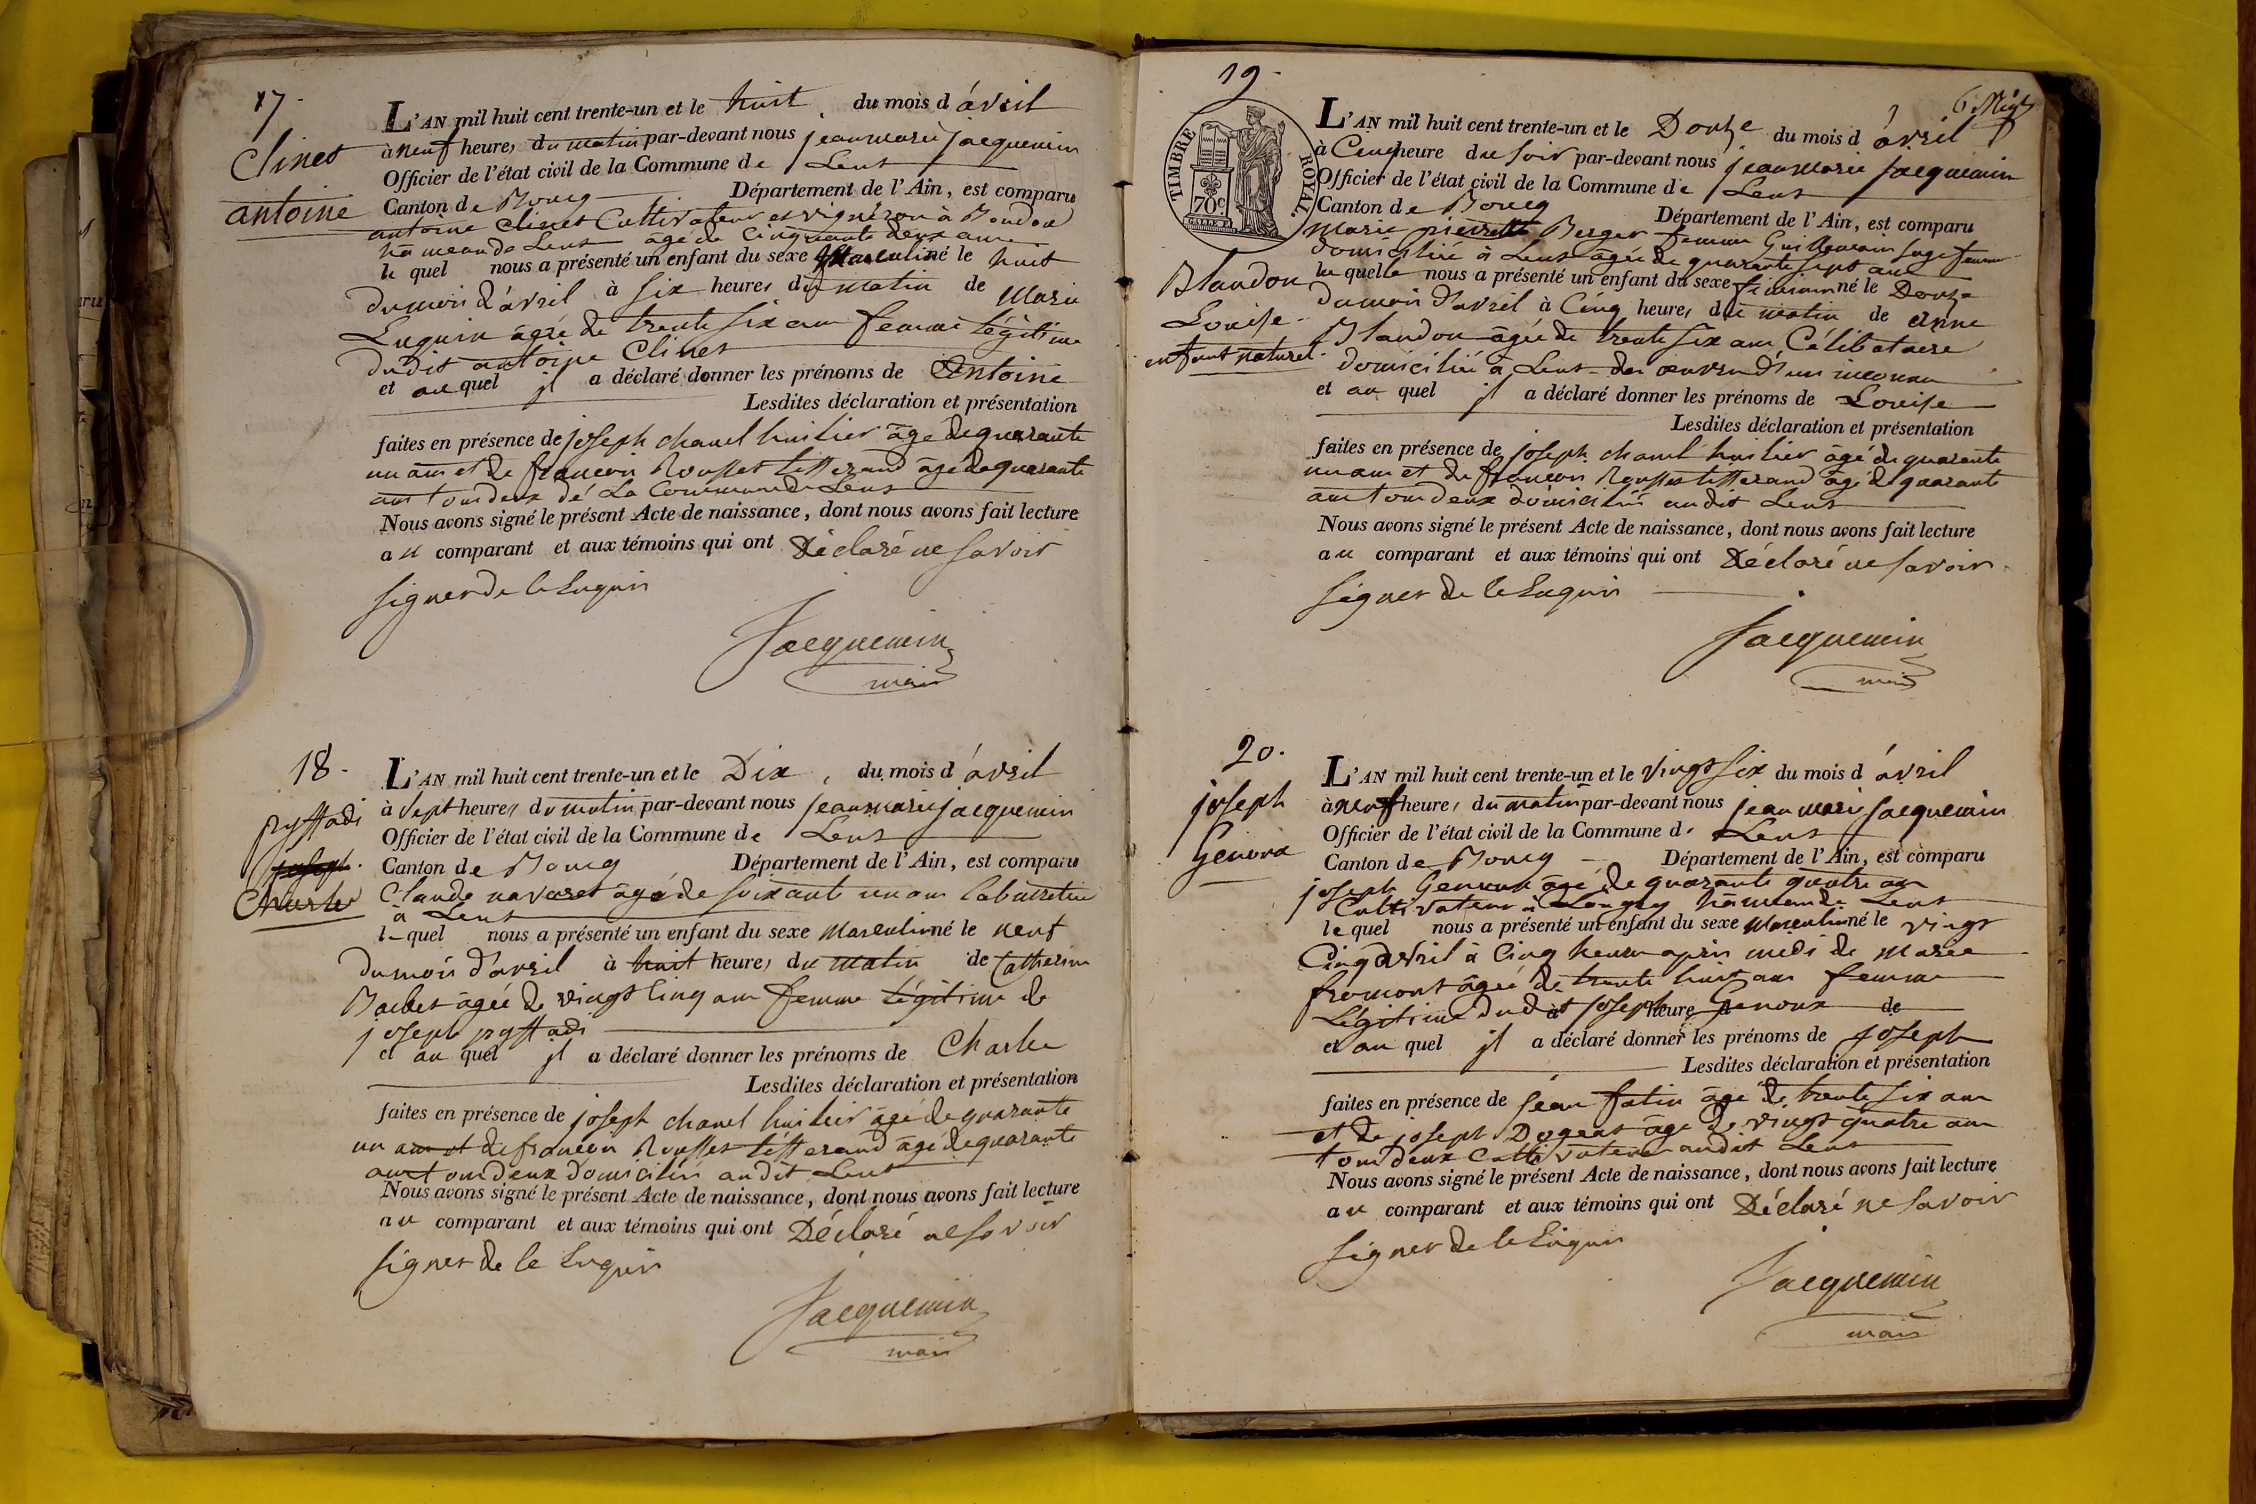 17.
Clinet
antoine
L'AN mil huit cent trente-un et le huit du mois d'avril
à neuf heures du matin par-devant nous jeanmarie jacquemin
Officier de l'état civil de la Commune de Lent
Canton de Bourg Département de l'Ain, est comparu
antoine Clinet Cultivateur et vigneron à
hameau de Lent âgé de Cinquante deux ans
le quel nous a présenté un enfant du sexe Masculin né le huit
du mois d'avril à Six heures du matin de Marie
Luquin âgée de trente Six ans femme légitime
dudit antoine Clinet
et au quel jl a déclaré donner les prénoms de Antoine
Lesdites déclaration et présentation
faites en présence de joseph chanel huilier âgé de quarante
un ans et de françois Rousset tisserand âgé de quarante
ans tous deux de La Commune de Lent
Nous avons signé le présent Acte de naissance, dont nous avons fait lecture
au comparant et aux témoins qui ont Déclaré ne Savoir
Signer de le
Jacquemin
maire
18.
joseph
Charles
L'AN mil huit cent trente-un et le Dix du mois d'avril
à Sept heures du matin par-devant nous jeanmarie jacquemin
Officier de l'état civil de la Commune de Lent
Canton de Bourg Département de l'Ain, est comparu
Claude navaret âgé de Soixante un ans
à Lent
le quel nous a présenté un enfant du sexe Masculin né le neuf
du mois d'avril à huit heures du matin de Catherine
âgée de vingt Cinq ans femme légitime de
joseph
et au quel jl a déclaré donner les prénoms de Charles
Lesdites déclaration et présentation
faites en présence de joseph chanel huilier âgé de quarante
un ans et de françois Rousset tisserand âgé de quarante
ans tous deux domiciliés audit Lent
Nous avons signé le présent Acte de naissance, dont nous avons fait lecture
au comparant et aux témoins qui ont Déclaré ne Savoir
Signer de le
Jacquemin
maire
19.
TIMBRE ROYAL.
70c
Blandon
Louise.
enfant naturel.
L'AN mil huit cent trente-un et le Douze du mois d'avril
à Cinq heure du Soir par-devant nous jeanmarie jacquemin
Officier de l'état civil de la Commune de Lent
Canton de Bourg Département de l'Ain, est comparu
Marie pierrette Berger femme Sage femme
domiciliée à Lent âgée de quarante sept ans
la quelle nous a présenté un enfant du sexe féminin né le Douze
du mois d'avril à Cinq heures du matin de Anne
Blandon âgée de trente Six ans Célibataire
domiciliée à Lent des œuvres d'un inconnu
et au quel jl a déclaré donner les prénoms de Louise
Lesdites déclaration et présentation
faites en présence de joseph chanel huilier âgé de quarante
un ans et de françois Rousset tisserand âgé de quarante
ans tous deux domiciliés audit Lent
Nous avons signé le présent Acte de naissance, dont nous avons fait lecture
au comparant et aux témoins qui ont Déclaré ne Savoir
Signer de le
Jacquemin
maire
20.
joseph
Genoux
L'AN mil huit cent trente-un et le vingt Six du mois d'avril
à neuf heures du matin par-devant nous jean marie jacquemin
Officier de l'état civil de la Commune de Lent
Canton de Bourg Département de l'Ain, est comparu
joseph Genoux âgé de quarante quatre ans
Cultivateur à Longey hameau de Lent
le quel nous a présenté un enfant du sexe Masculin né le vingt
Cinq avril à Cinq heures après midi de Marie
fromont âgée de trente huit ans femme
Légitime dudit joseph Genoux
à heure d de
et au quel jl a déclaré donner les prénoms de joseph
Lesdites déclaration et présentation
faites en présence de jean fatin âgé de trente Six ans
et de joseph âgé de vingt quatre ans
tous deux Cultivateurs audit Lent
Nous avons signé le présent Acte de naissance, dont nous avons fait lecture
au comparant et aux témoins qui ont Déclaré ne Savoir
Signer de le
Jacquemin
maire